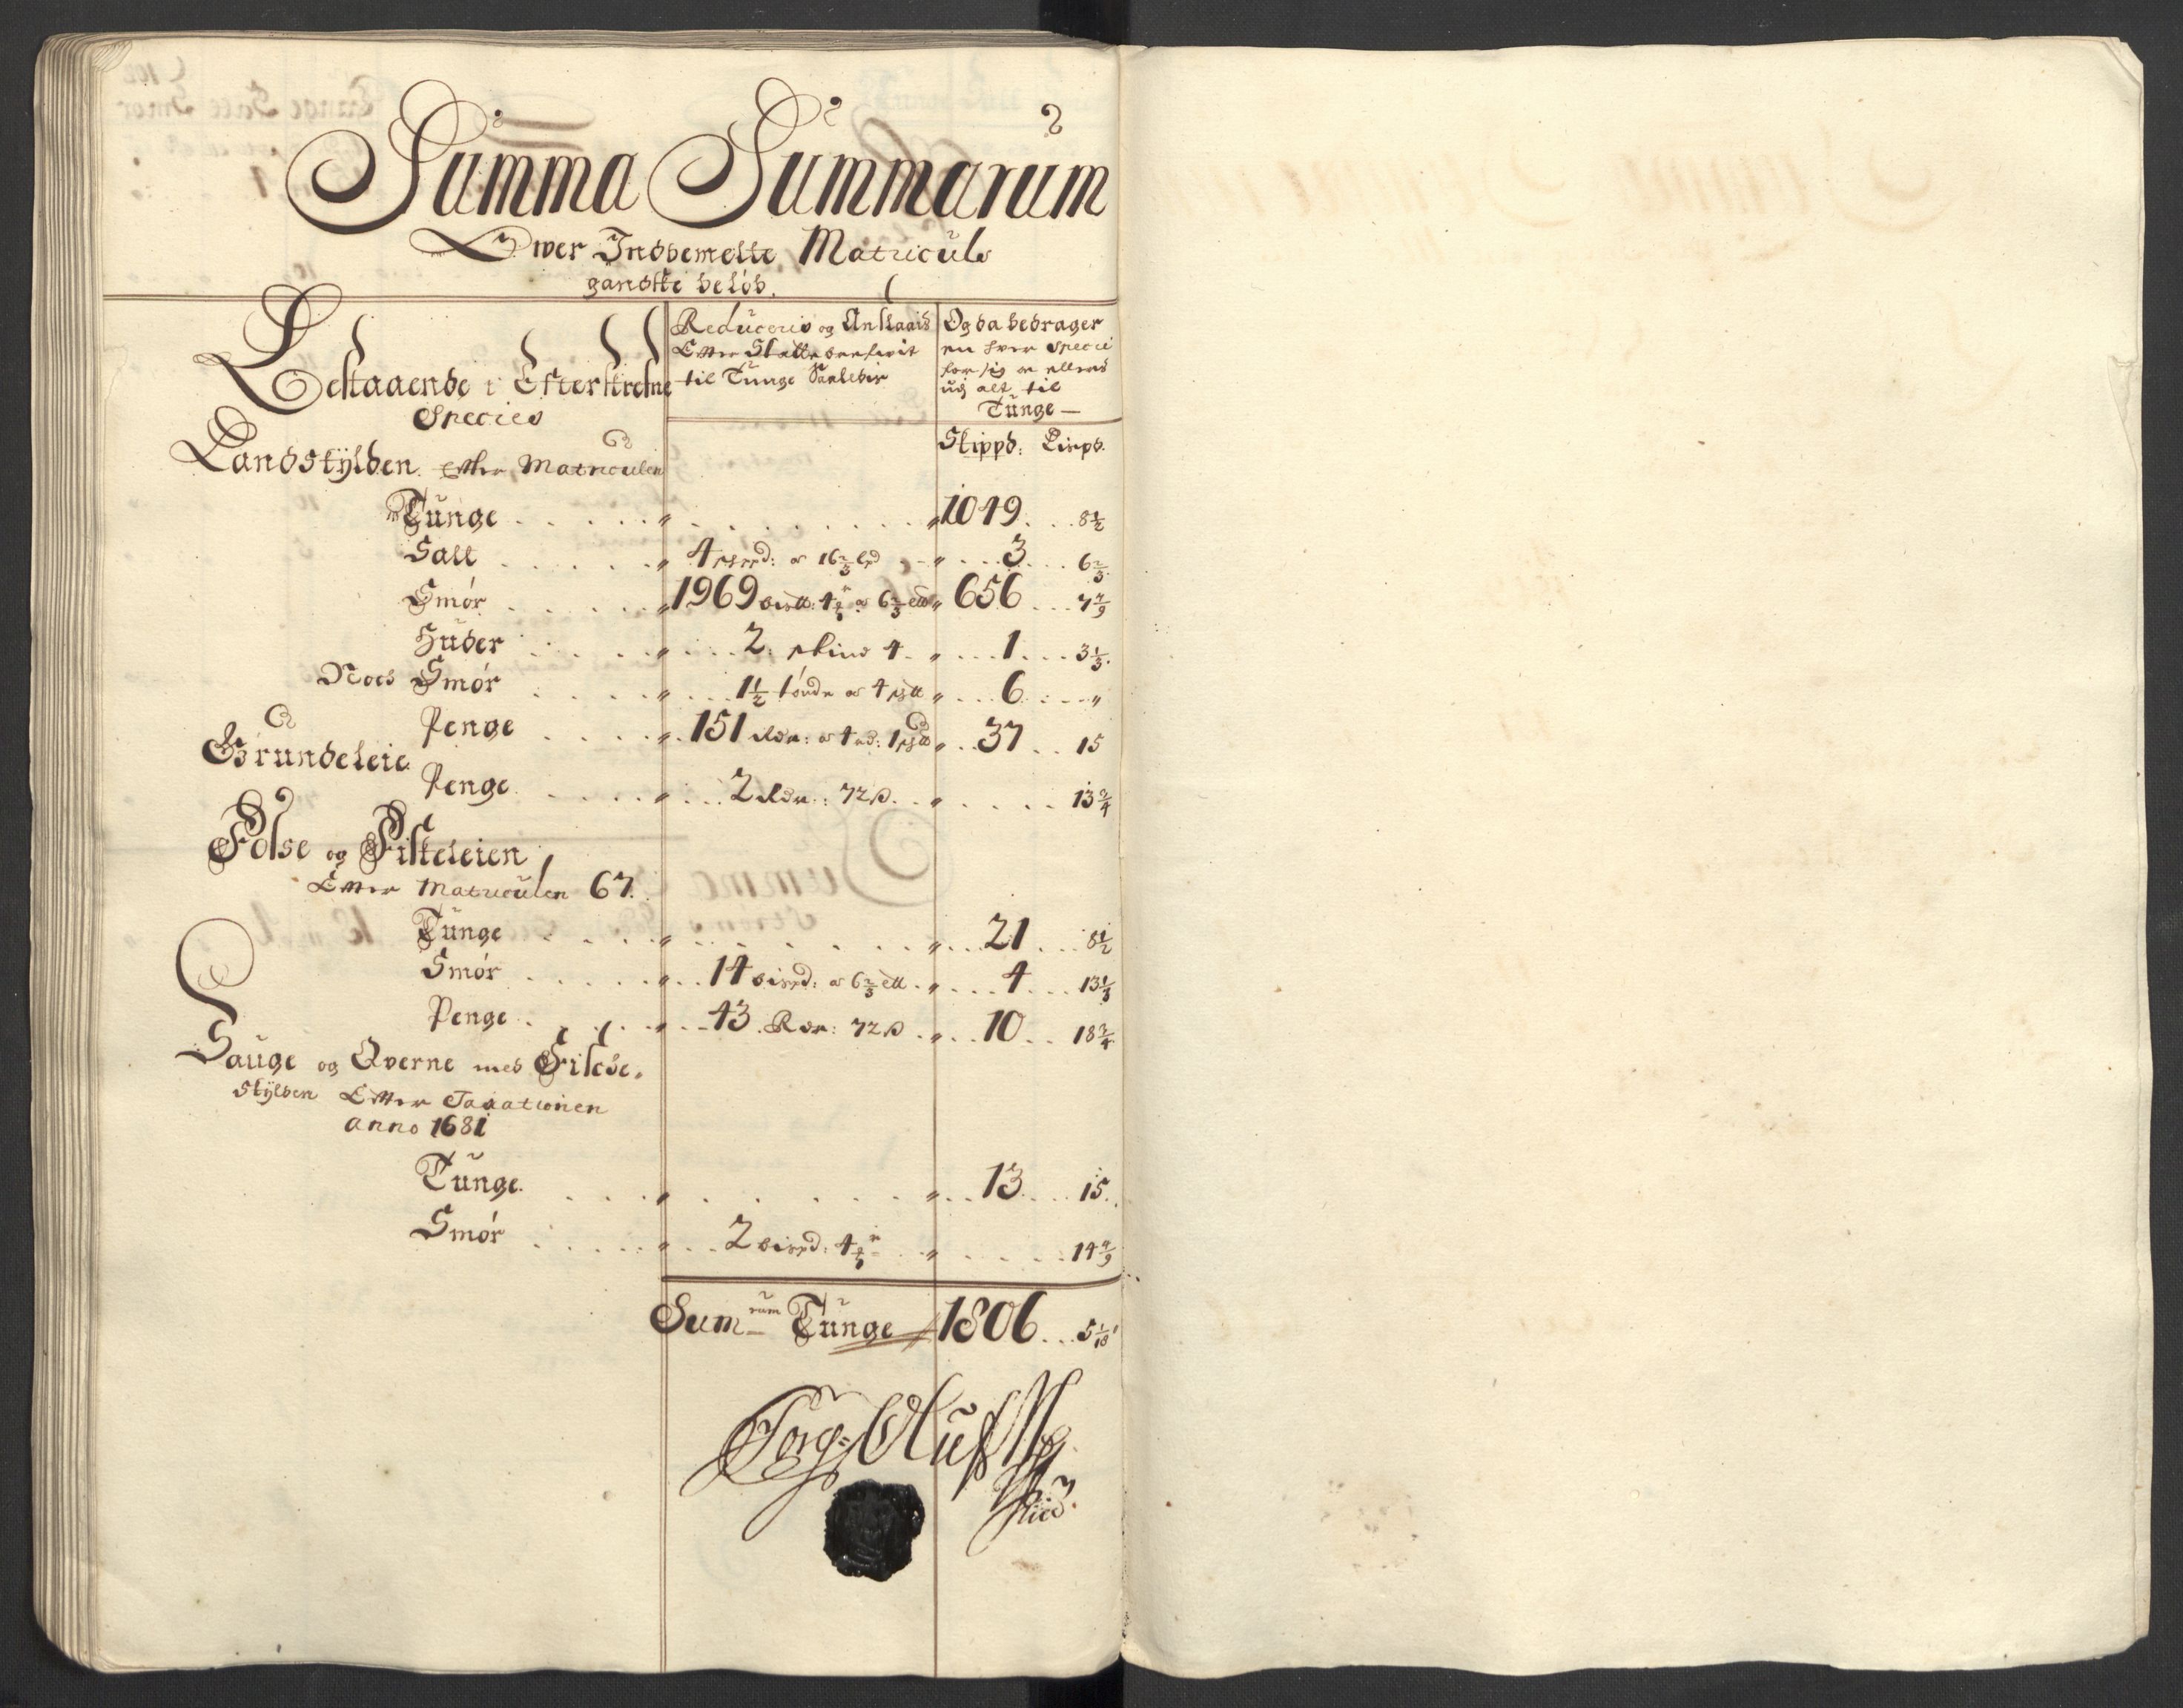 Summa Summarum
Ower Indbemelte Matriculs
gandske beløb.
Bestaaende i Efterskrefne
Species
Reduceris og Anslaais
Efter
til Tunge Saaledis
Og da bedrager
en hver Specie
for sig
ud alt til
Tunge —
Skippd: Lispd.
Landskylden Efter Matriculen
Tunge . . . . . „ . . . . . . . . „ 1049 . . 8½
Salt . . . . . „ 4 à 16⅔ „ . . . 3 . . . 6⅔
Smør . . . . . „ 1969 à 6⅔ „ 656 . . . 7 4/9
Huder . . . . „ . . . 2: 4 „ . . . 1 . . . 3⅓.
Noch Smør . . . . „ . . . 1½ tønde à 4 „ . . . 6 . . . „
Penge . . . . „ 151 Rdr: à 4 rd: 1 „ . . 37 . . 15
Grundeleie
Penge . . . . „ . . . 2 Rdr: 72 ß. „ . . . . 13¾
Følse og Fiskeleien
Efter Matriculen 67.
Tunge . . . . „ . . . . . . . . „ . . . 21 . . . 8½
Smør . . . . . „ . . 14 à 6⅔ . „ . . . 4 . . . 13⅓
Penge . . . . „ . . 43 Rdr: 72 ß . „ . . 10 . . 18¾
Sauge og Qverne med
Skylden Efter Taxationen
anno 1681
Tunge . . . . „ . . . . . . . „ . . 13 . . . 15.
Smør . . . . . „ . . . 2 . . „ . . . . . 14 4/9
Sum-rum Tunge 1806 . . 5 1/18